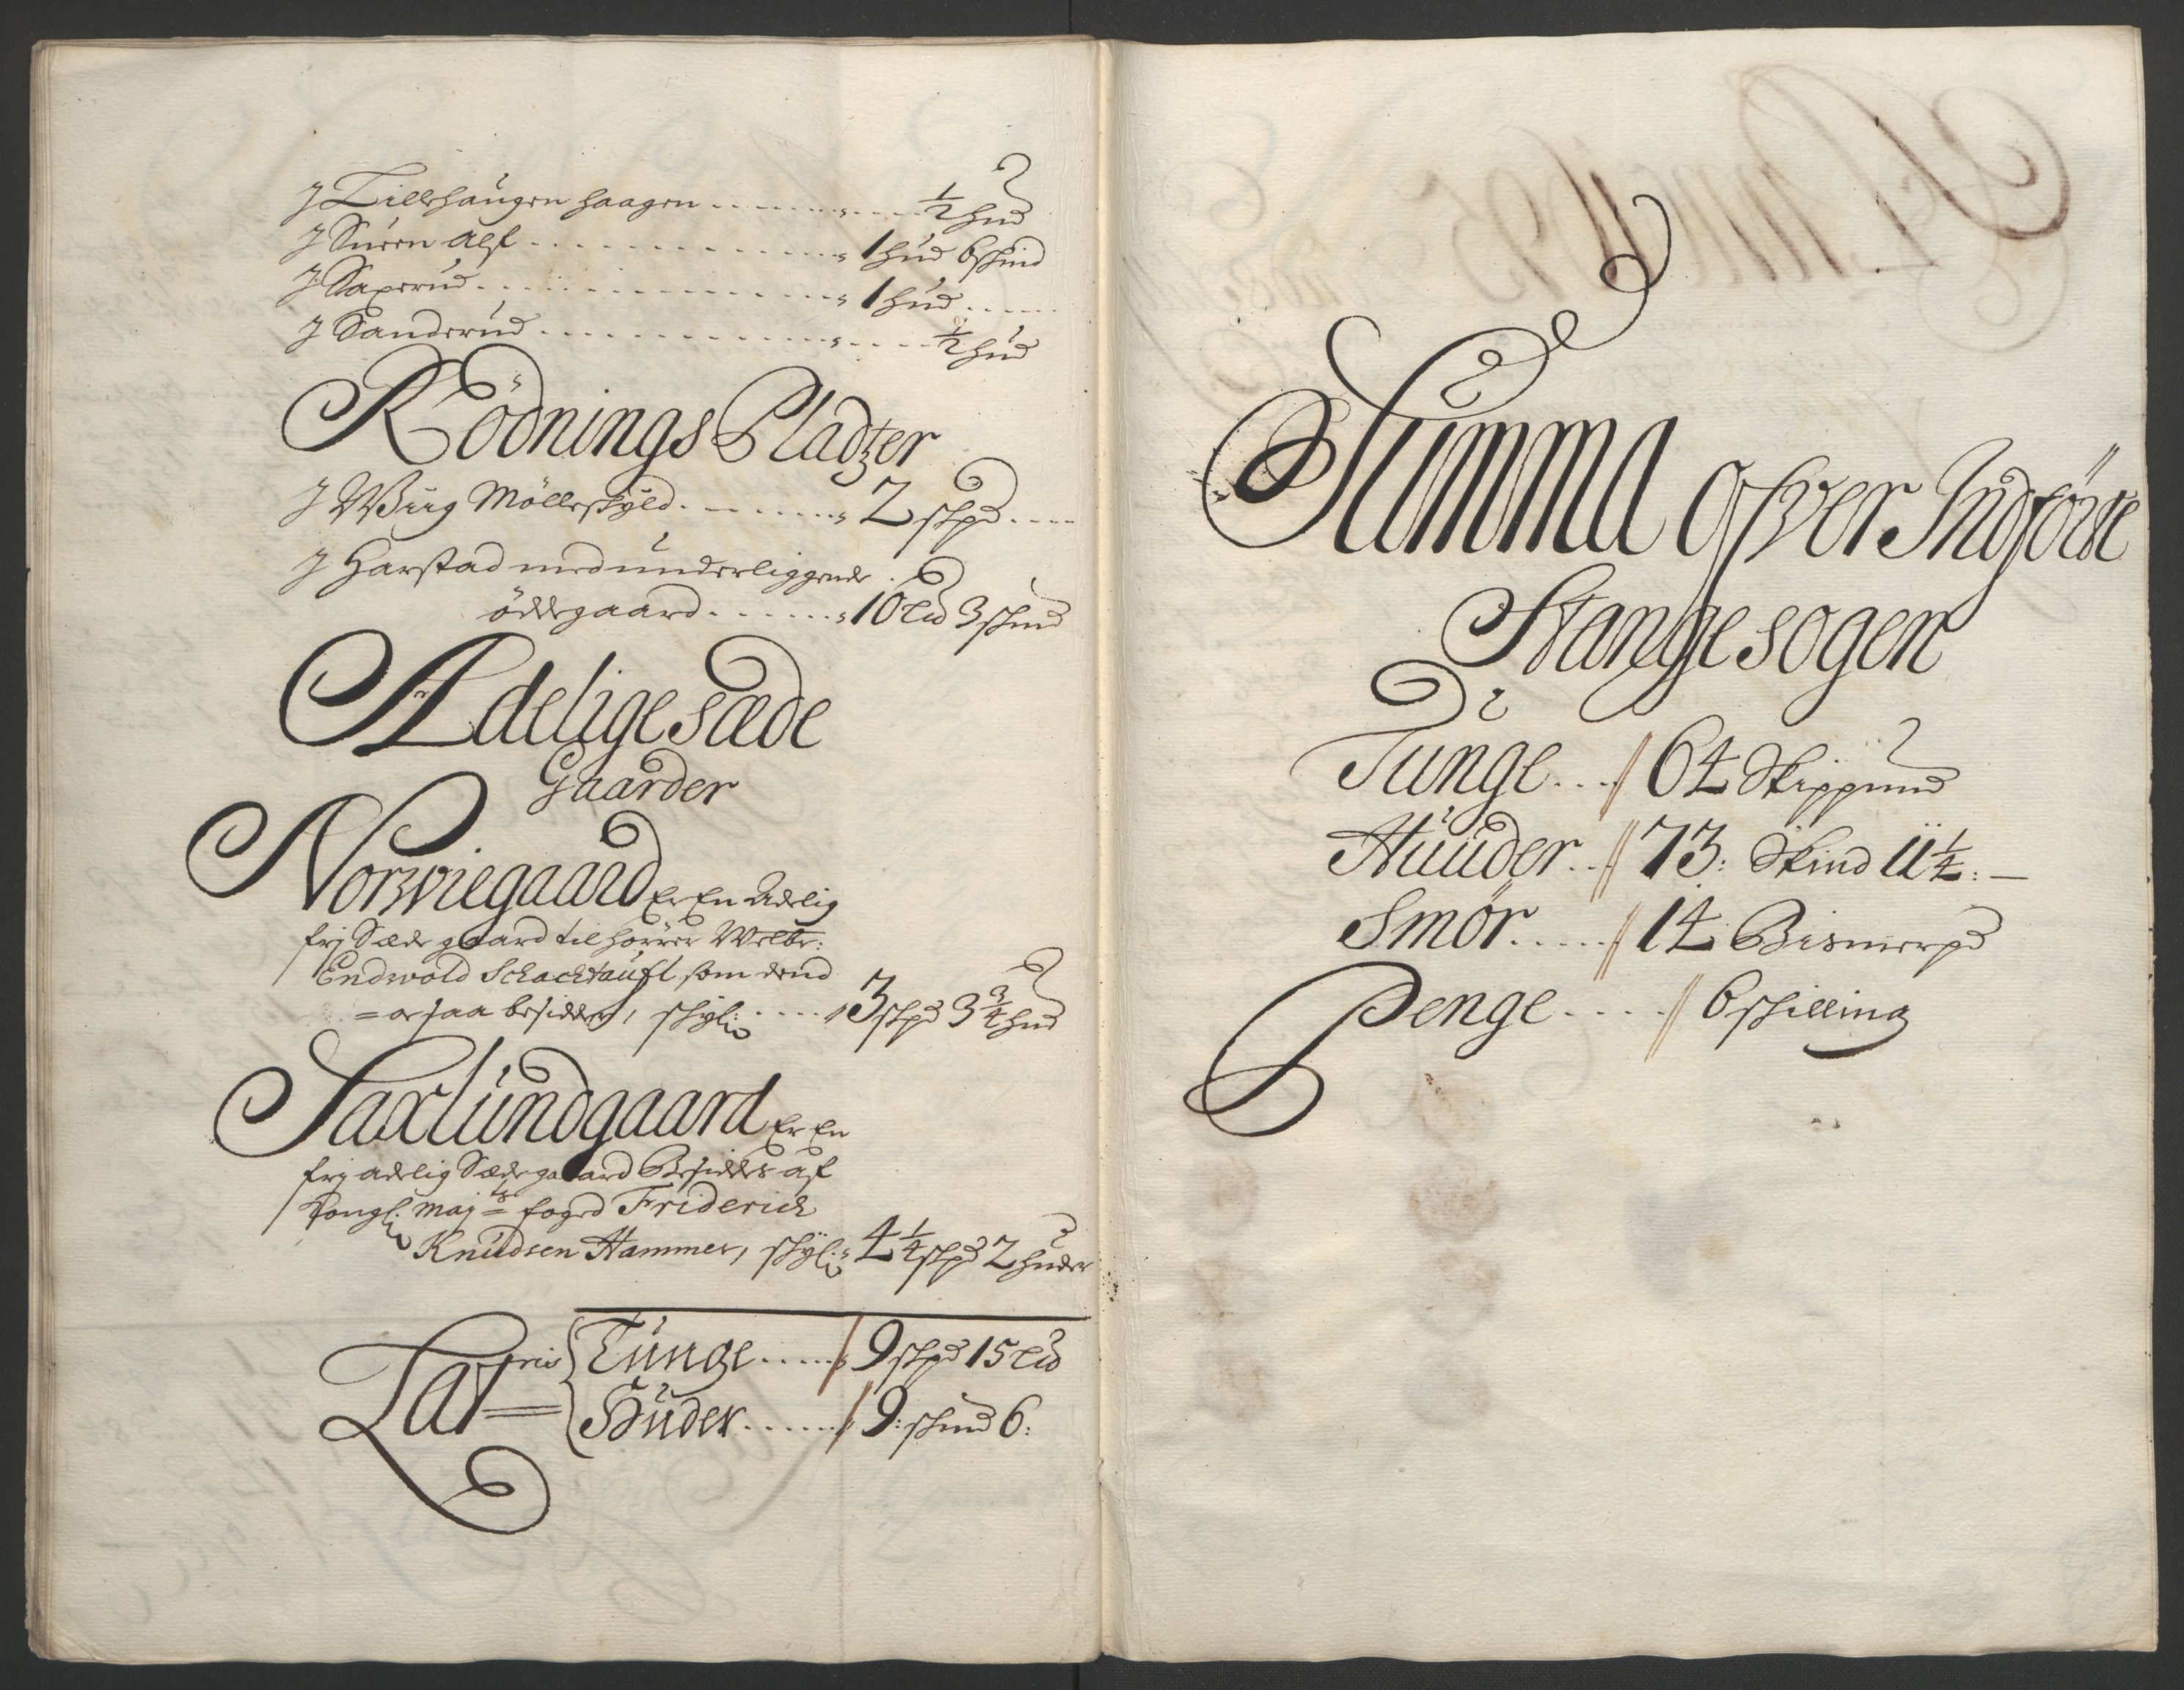 J Lillehaugen haagen . . . . . . . ½ hud
J Suren alf . . . . . . . . . 1 hud 6 skind
J Saxerud . . . . . . . . . . 1 hud . . . .
J Sanderud . . . . . . . . . . ½ hud
Rödnings Pladzer
J Wiig Mölleskyld . . . . . . 2 skpd . . . .
J Harstad med underliggende
ödegaard . . . . . . 10 Lid 3 skind
Adelige sæde
Gaarder
Norviegaard Er En Adelig
frj Sæde gaard tilhörrer Welbr:
Endwold Schacktauft, som dend
= ossaa besidder, skyl: . . . . 3 skpd 3¾ hud
Saxlundgaard Er En
frj adelig Sædegaard Besiddes af
Kongl: Maj=ts fogd Friderich
Knudsen Hammer, skyl: 4¼ skpd 2 huder
Lat=eris { Tunge . . . . . 9 skpd 15 Lid
{ Huder . . . . . . 9: skind 6:
Summa ofver Indförte
Stange sogen
Tunge . . . // 64 Skippund
Huuder . . // 73: Skind 11¼: —
Smör . . . . . // 14 Bismerpd
Penge . . . . . // 6 skilling